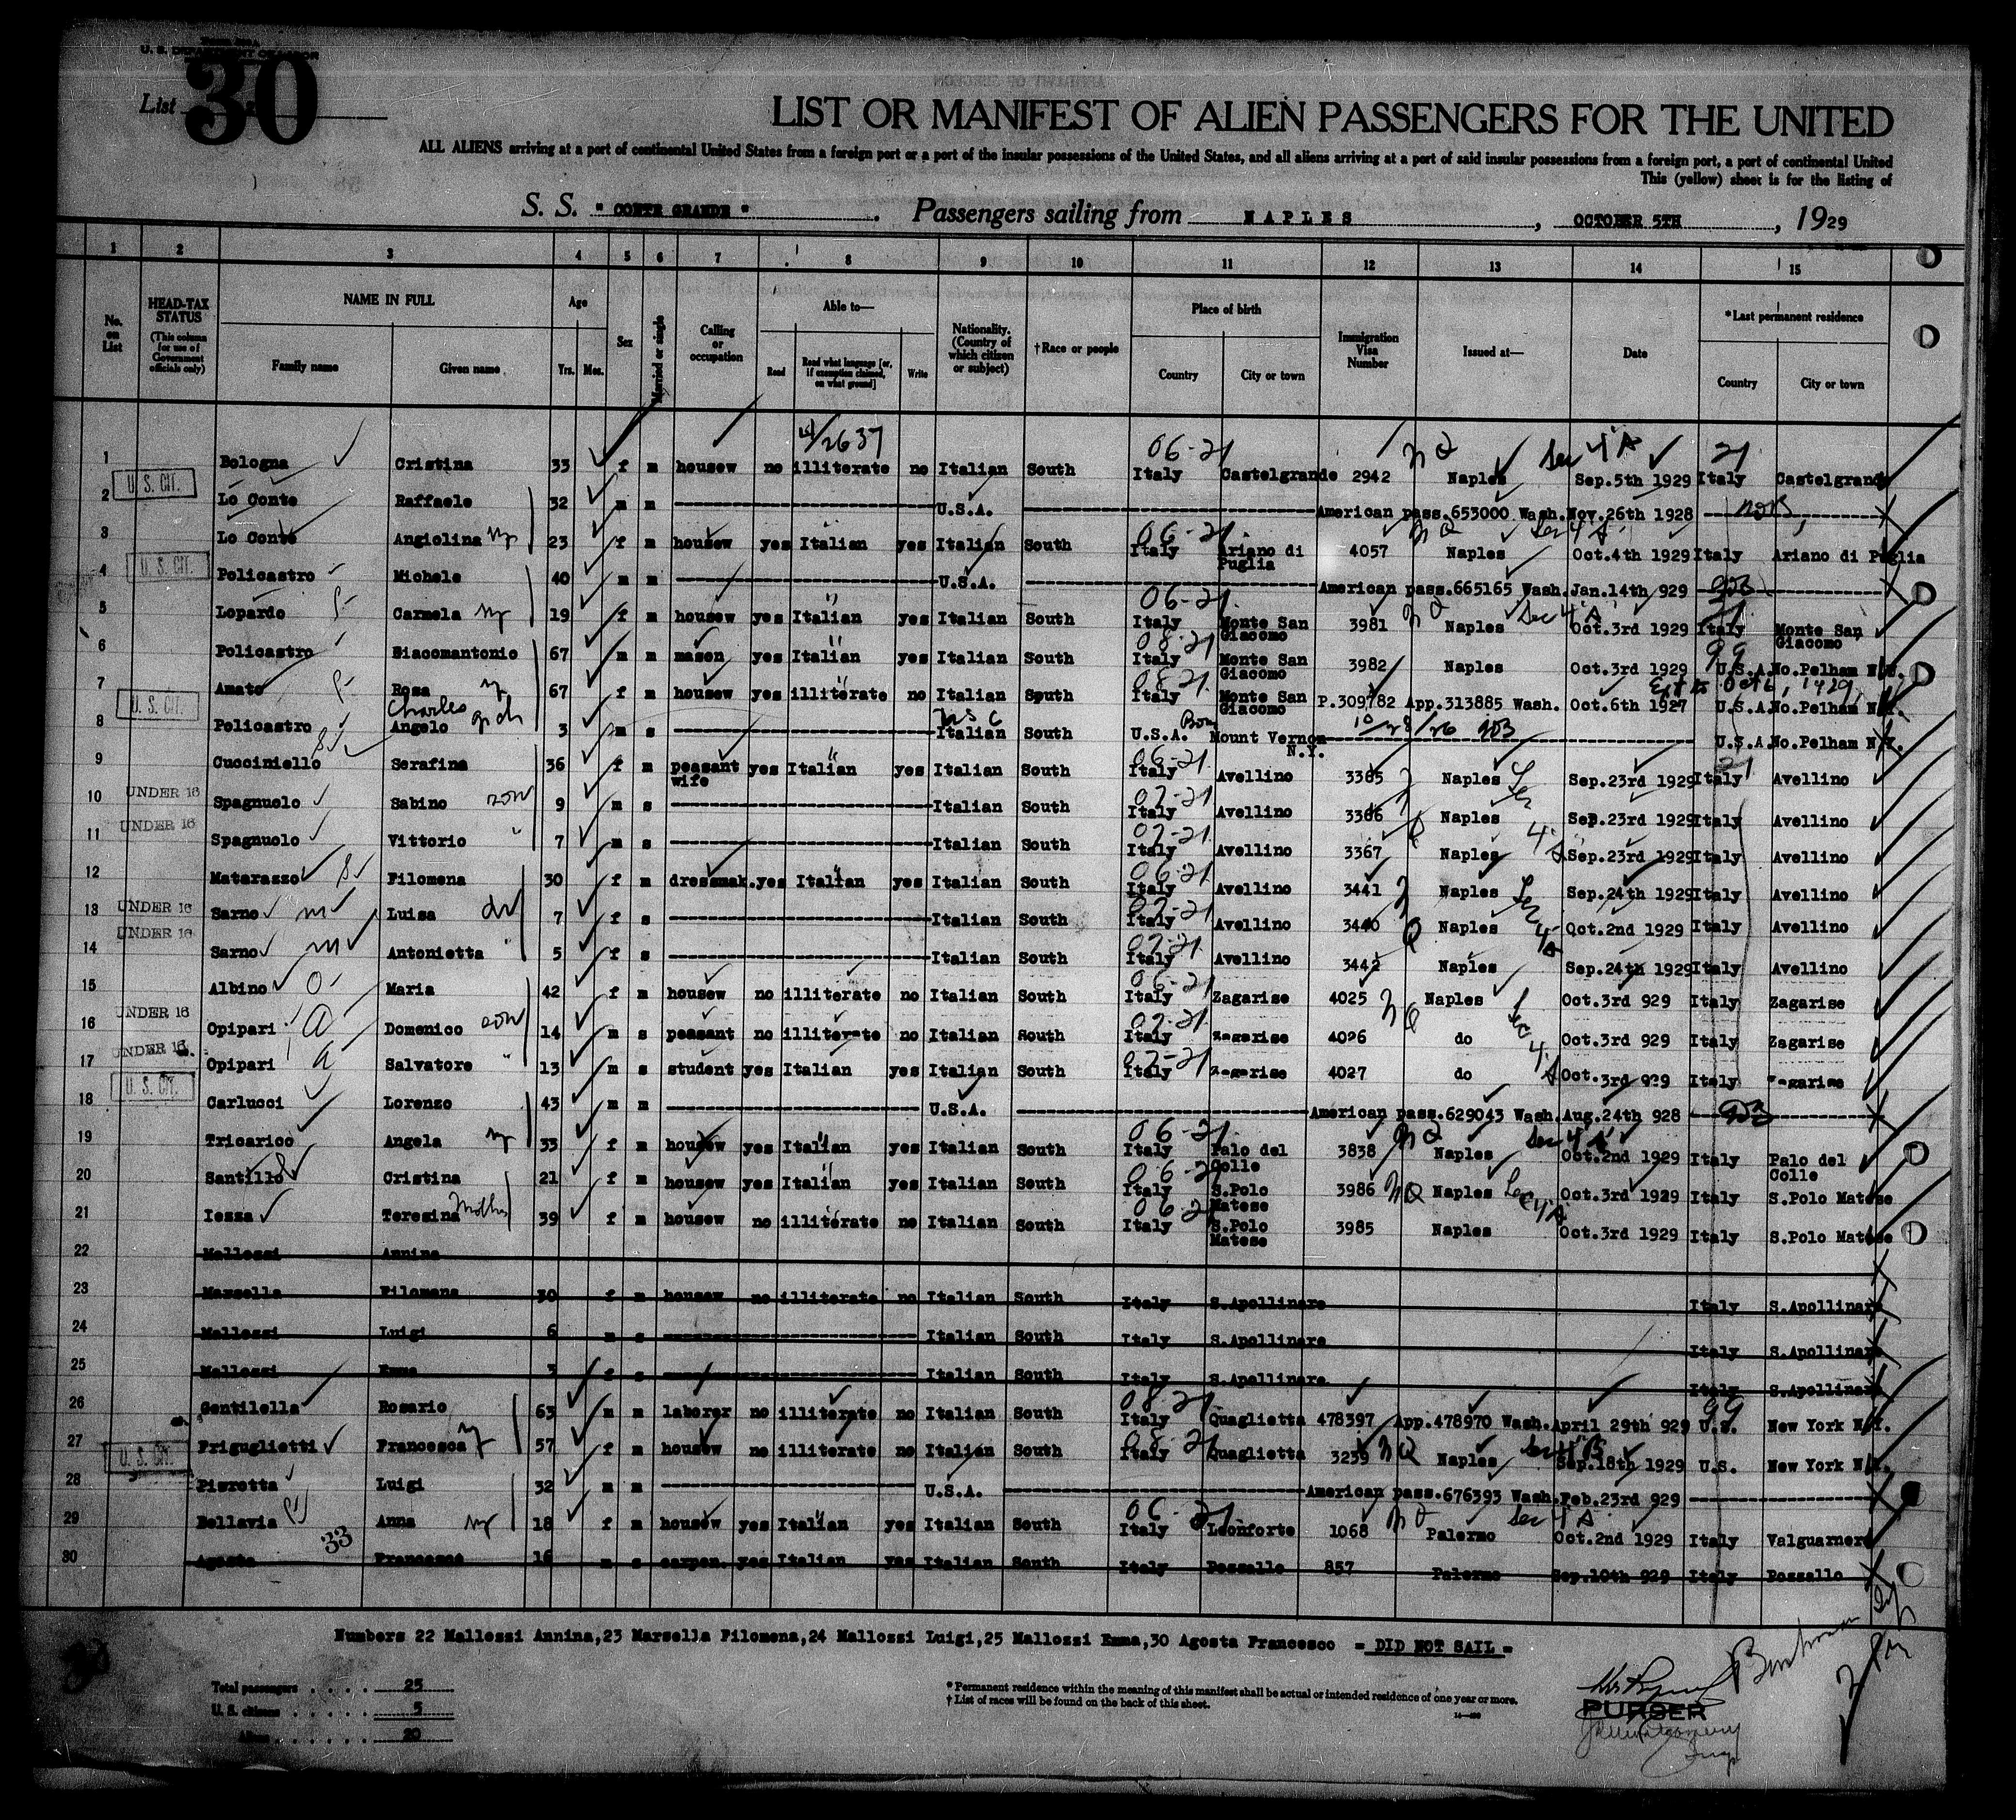 U. S. DEPARTMENT OF LABOR
List 30
LIST OR MANIFEST OF ALIEN PASSENGERS FOR THE UNITED
ALL ALIENS arriving at a port of continental United States from a foreign port or a port of the insular possessions of the United States, and all aliens arriving at a port of said insular possessions from a foreign port, a port of continental United
This (yellow) sheet is for the listing of
S. S. "CONTE GRANDE". Passengers sailing from NAPLES, OCTOBER 5TH, 1929
1 2 3 4 5 6 7 8 9 10 11 12 13 14 15
No. on List HEAD-TAX STATUS (This column for use of Government officials only) NAME IN FULL Family name Given name Age Yrs. Mos. Sex Married or single Calling or occupation Able to— Read Read what language [or, if exemption claimed, on what ground] Write Nationality. (Country of which citizen or subject) †Race or people Place of birth Country City or town Immigration Visa Number Issued at— Date *Last permanent residence Country City or town
1 Bologna Cristina 33 f m housew no illiterate no Italian South 06-21 Italy Castelgrande 2942 NQ Naples Sec 4 A Sep.5th 1929 21 Italy Castelgrande
2 U. S. CIT. Lo Conte Raffaele 32 m m U.S.A. American pass.653000 Wash. Nov.26th 1928
3 Lo Conte Angiolina 23 f m housew yes Italian yes Italian South 06-21 Italy Ariano di Puglia 4057 NQ Naples Sec 4 A Oct.4th 1929 Italy Ariano di Puglia
4 U. S. CIT. Policastro Michele 40 m m U.S.A. American pass.665165 Wash. Jan.14th 929
5 Lopardo Carmela 19 f m housew yes Italian yes Italian South 06-21 Italy Monte San Giacomo 3981 NQ Naples Sec 4 A Oct.3rd 1929 21 Italy Monte San Giacomo
6 Policastro Giacomantonio 67 m m mason yes Italian yes Italian South 08-21 Italy Monte San Giacomo 3982 Naples Oct.3rd 1929 99 U.S.A. No.Pelham N.Y.
7 Amato Rosa 67 f m housew yes illiterate no Italian South 08-21 Italy Monte San Giacomo P.309782 App.313885 Wash. Oct.6th 1927 U.S.A. No.Pelham N.Y.
8 U. S. CIT. Policastro Charles Angelo 3 m s USC Italian South U.S.A. Born Mount Vernon N.Y. 10/28/26 U.S.A. No.Pelham N.Y.
9 Cucciniello Serafina 36 f m peasant wife yes Italian yes Italian South 06-21 Italy Avellino 3365 Naples Sep.23rd 1929 21 Italy Avellino
10 UNDER 16 Spagnuolo Sabino son 9 m s Italian South 07-21 Italy Avellino 3366 Naples Sep.23rd 1929 Italy Avellino
11 UNDER 16 Spagnuolo Vittorio " 7 m s Italian South 07-21 Italy Avellino 3367 Naples Sep.23rd 1929 Italy Avellino
12 Matarazzo Filomena 30 f m dressmak. yes Italian yes Italian South 06-21 Italy Avellino 3441 Naples Sep.24th 1929 Italy Avellino
13 UNDER 16 Sarno Luisa 7 f s Italian South 07-21 Italy Avellino 3440 Naples Oct.2nd 1929 Italy Avellino
14 UNDER 16 Sarno Antonietta " 5 f s Italian South 07-21 Italy Avellino 3442 Naples Sep.24th 1929 Italy Avellino
15 Albino Maria 42 f m housew no illiterate no Italian South 06-21 Italy Zagarise 4025 NQ Naples Oct.3rd 929 Italy Zagarise
16 UNDER 16 Opipari Domenico son 14 m s peasant no illiterate no Italian South 07-21 Italy Zagarise 4026 do Oct.3rd 929 Italy Zagarise
17 UNDER 16 Opipari Salvatore " 13 m s student yes Italian yes Italian South 07-21 Italy Zagarise 4027 do Oct.3rd 929 Italy Zagarise
18 U. S. CIT. Carlucci Lorenzo 43 m m U.S.A. American pass.629043 Wash. Aug.24th 928
19 Tricarico Angela 33 f m housew yes Italian yes Italian South 06-21 Italy Palo del Colle 3838 NQ Naples Sec 4 A Oct.2nd 1929 Italy Palo del Colle
20 Santillo Cristina 21 f m housew yes Italian yes Italian South 06-21 Italy S.Polo Matese 3986 NQ Naples Sec 4 A Oct.3rd 1929 Italy S.Polo Matese
21 Iezza Teresina Mother 39 f m housew no illiterate no Italian South 06-21 Italy S.Polo Matese 3985 Naples Oct.3rd 1929 Italy S.Polo Matese
22 Mallozzi Annina
23 Marsella Filomena 30 f m housew no illiterate no Italian South Italy S.Apollinare Italy S.Apollinare
24 Mallozzi Luigi 6 m s Italian South Italy S.Apollinare Italy S.Apollinare
25 Mallozzi Emma 3 f s Italian South Italy S.Apollinare Italy S.Apollinare
26 Gentilella Rosario 63 m m laborer no illiterate no Italian South 08-21 Italy Quaglietta 478397 App.478970 Wash. April 29th 929 99 U.S. New York N.Y.
27 Friguglietti Francesca 57 f m housew no illiterate no Italian South 08-21 Italy Quaglietta 3239 NQ Naples Sec 4 B Sep.18th 1929 U.S. New York N.Y.
28 U. S. CIT. Pieretta Luigi 32 m m U.S.A. American pass.676393 Wash. Feb.23rd 929
29 Bellavia Anna 18 f m housew yes Italian yes Italian South 06-21 Italy Leonforte 1068 NQ Palermo Sec 4 A Oct.2nd 1929 Italy Valguarnera
30 Agosta Francesco 16 m s carpen. yes Italian yes Italian South Italy Pozzallo 857 Palermo Sep.10th 929 Italy Pozzallo
33
Numbers 22 Mallozzi Annina,23 Marsella Filomena,24 Mallozzi Luigi,25 Mallozzi Emma,30 Agosta Francesco = DID NOT SAIL =
Total passengers . . . . 25
U. S. citizens . . . . . 5
Aliens . . . . . . 20
* Permanent residence within the meaning of this manifest shall be actual or intended residence of one year or more.
† List of races will be found on the back of this sheet.
PURSER